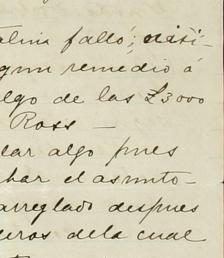 falló; dási-
gun remedio á
lgo de las £3000
Ross —
dar algo pues
bar el asunto-
arreglado despues
eros de la cual